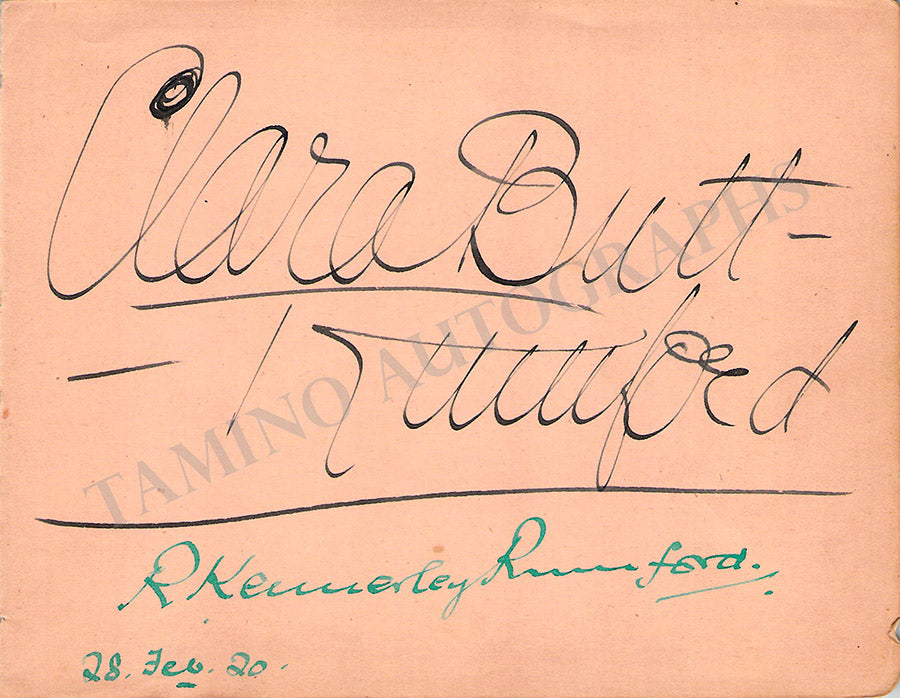 Clara Butt-
- Rumford
TAMINO AUTOGRAPHS
R Kennerley Rumford.
28. Feb. 20.